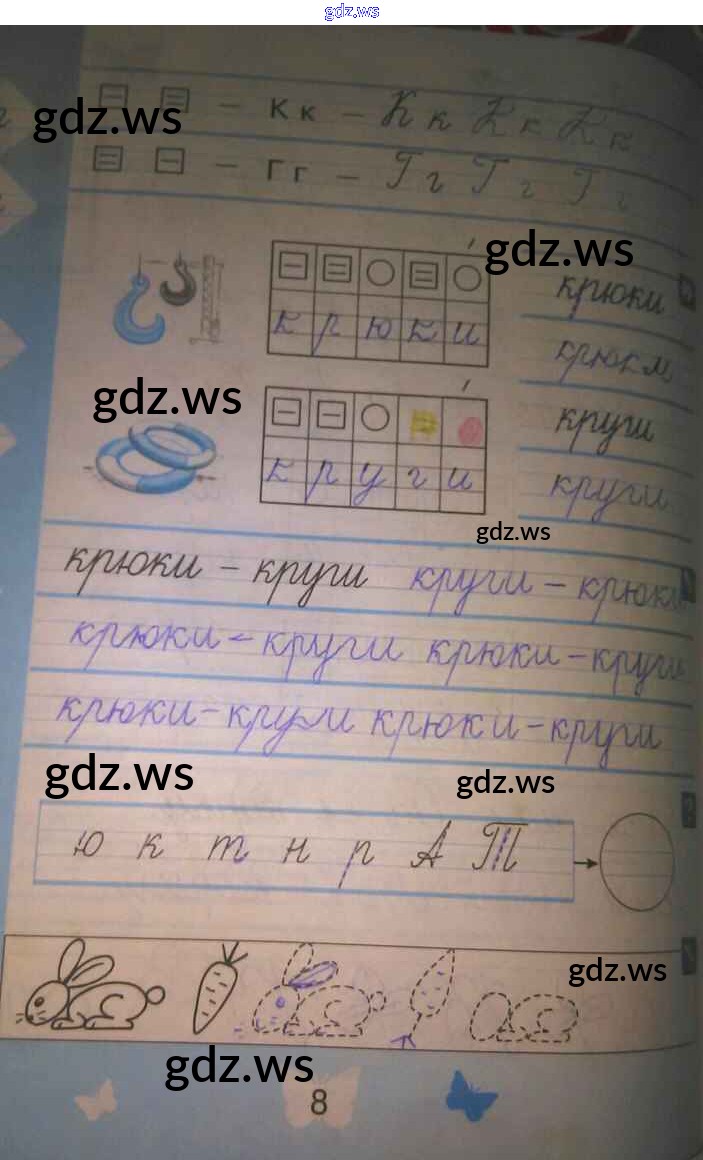 gdz.ws
К к – К к К к К к
gdz.ws
Г г – Г г Г г Г г
gdz.ws
крюки
крюки
крюки
gdz.ws
круги
круги
круги
gdz.ws
крюки – круги круги – крюки
крюки – круги крюки – круги
крюки – круги крюки – круги
gdz.ws
gdz.ws
ю к т н р А Т
gdz.ws
gdz.ws
8